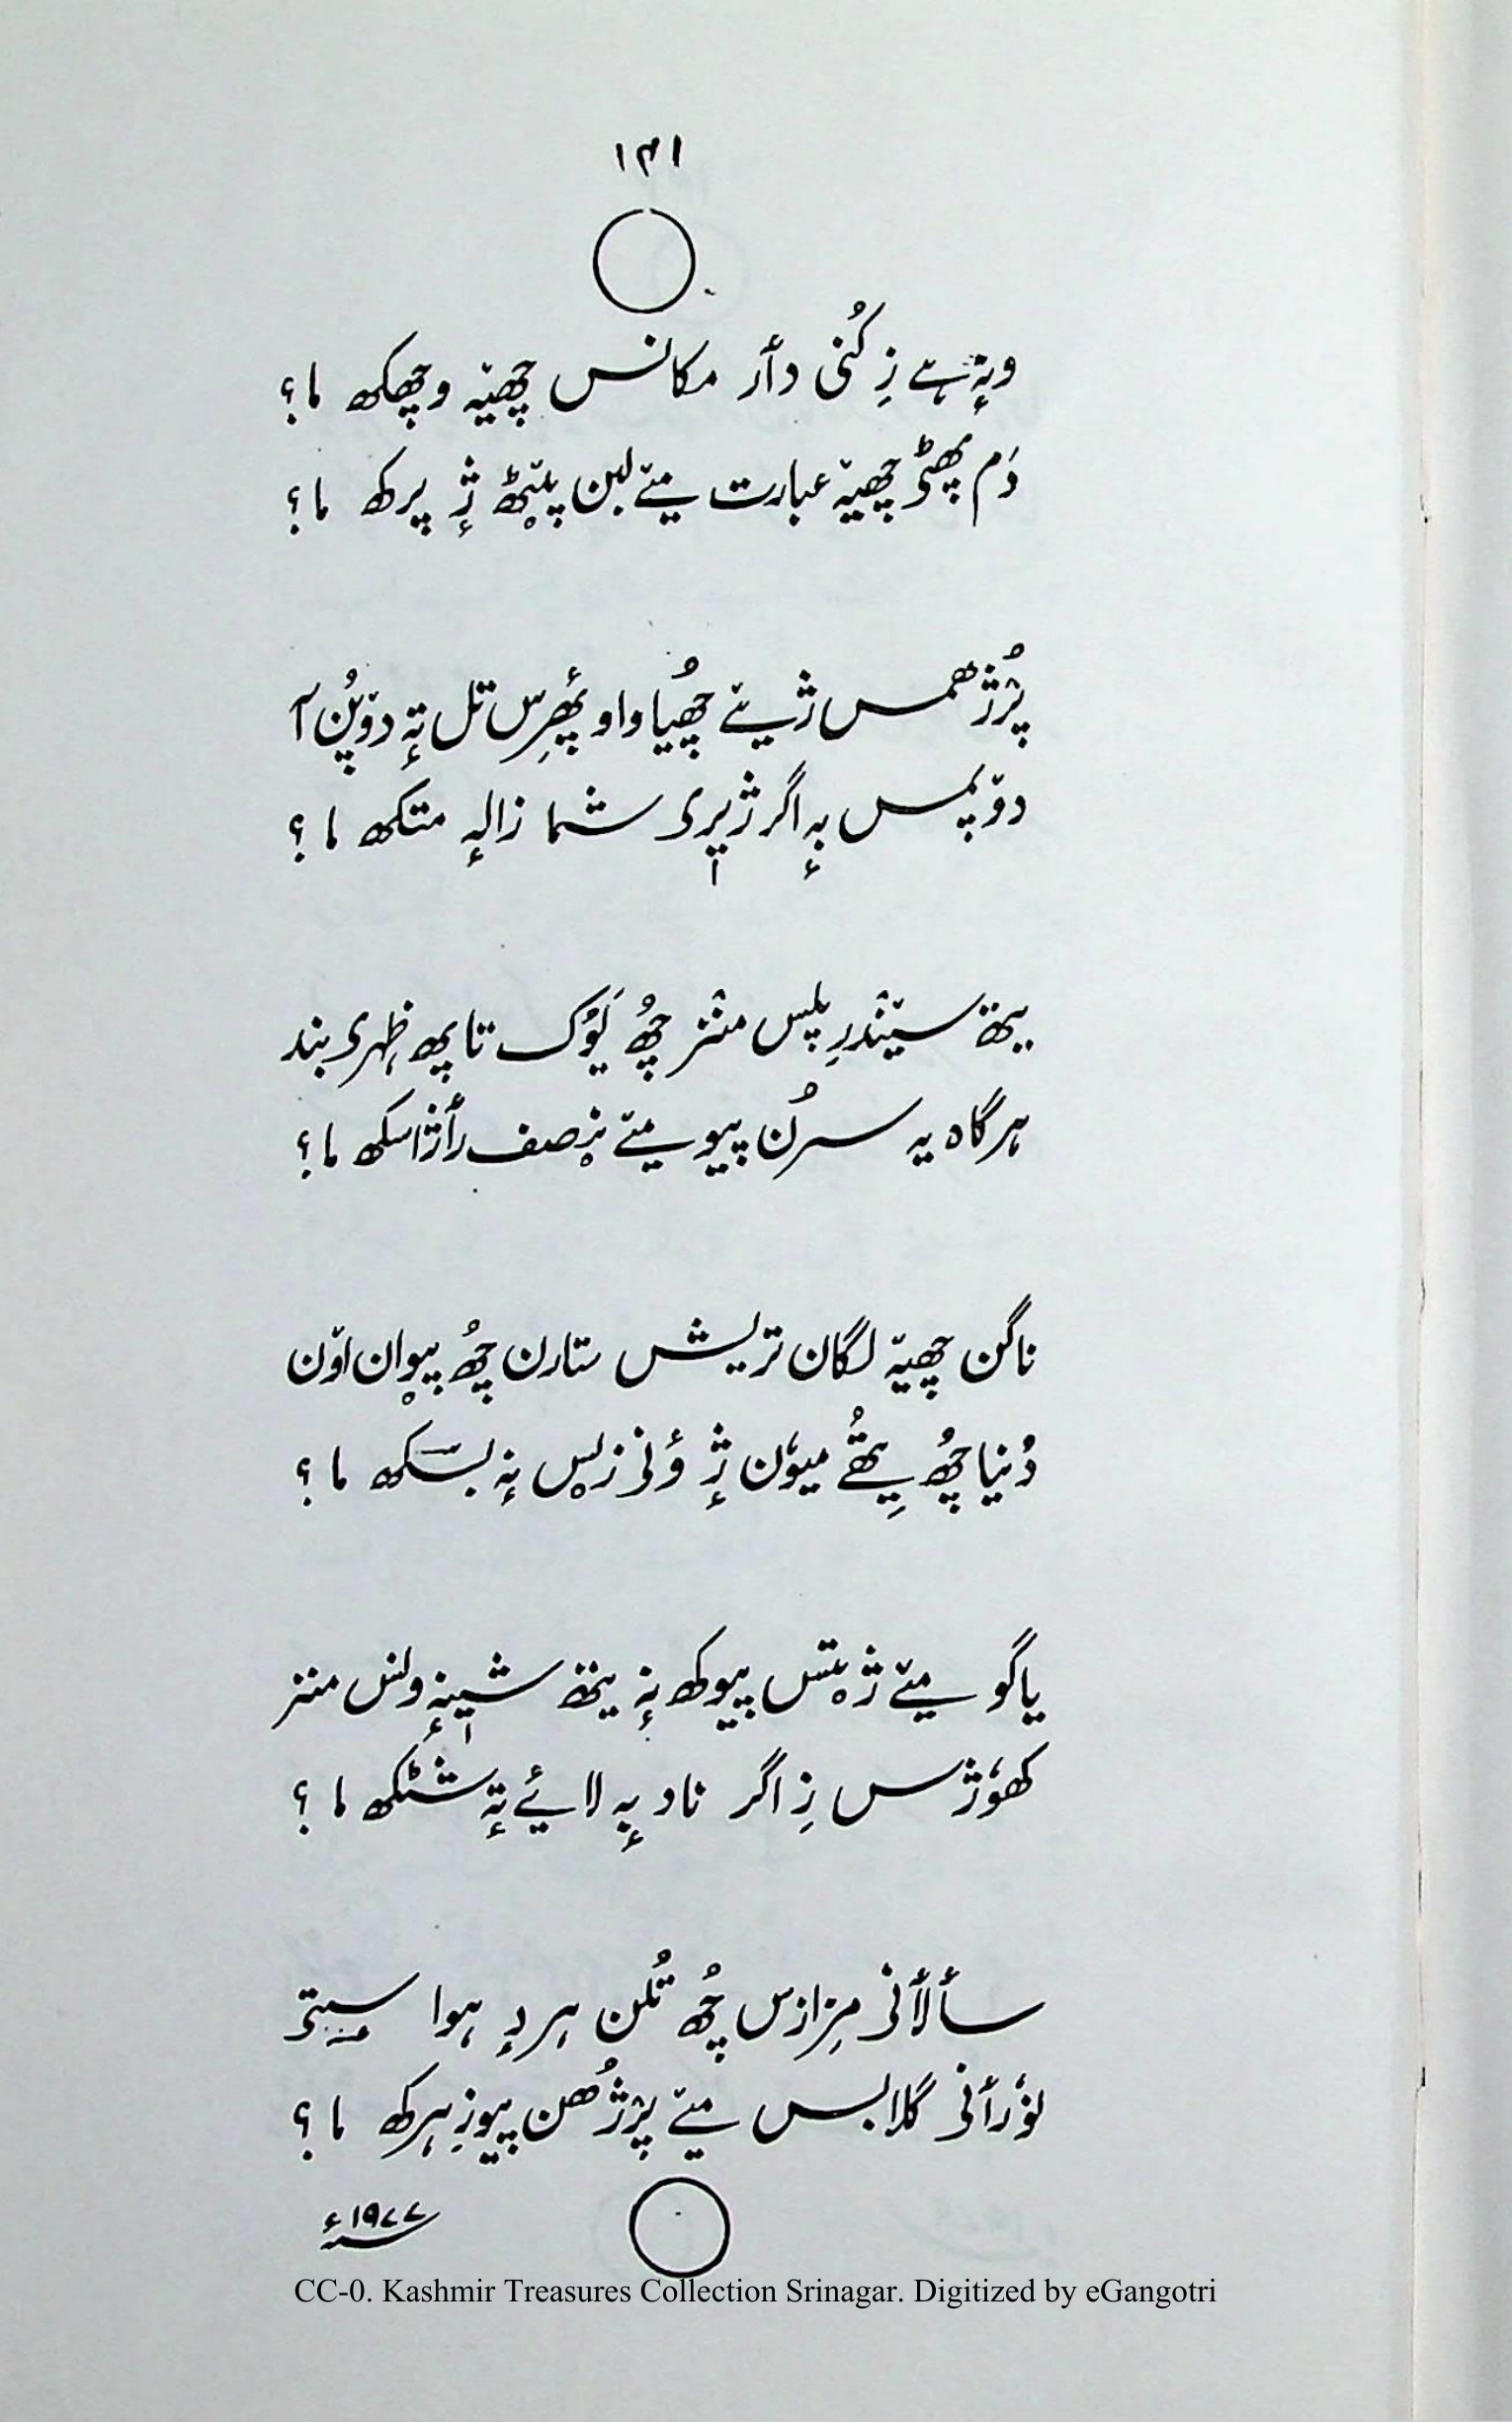 ۱۴۱
وۄتہٕ ہے زِ کُنی دٲر مکانس چھیہٕ وچھکھ ما؟
دَم پھٹی چھیہٕ عبارت مےٚ لبن پیٚٹھ ژٕ پرکھ ما؟
پرُژھمس ژےٚ چھُیا واو پھٔرِس تل تہٕ دوٚپُن آ
دوٚپمس بہٕ اگر ژٕری شما زالہٕ متکھ ما؟
یتھ سیٚندرِ پلس منٛز چھُ کَیُوک تاپھ ظہری بند
ہرگاہ یہ سرُن پیو مےٚ نِصف رٲژ اسکھ ما؟
ناگن چھیہٕ لگان تریش ستارن چھُ پیوان اوٚن
دُنیا چھُ یِتھُے میون ژٕ ؤنی زِیس نہٕ بسکھ ما؟
یا گو مےٚ ژہٕتس پیوکھ نہٕ یتھ شیٖنہٕ ولنس منز
کھوٗژس زِ اگر ناد بہٕ لائے تہٕ ژٹکھ ما؟
سٲلٲنی مِزازس چھُ تُلن ہردٕ ہوا سیتی
نوٗرٲنی گلابس مےٚ پرژھُن پیو زِ ہرکھ ما؟
۱۹۷۷ء
CC-0. Kashmir Treasures Collection Srinagar. Digitized by eGangotri